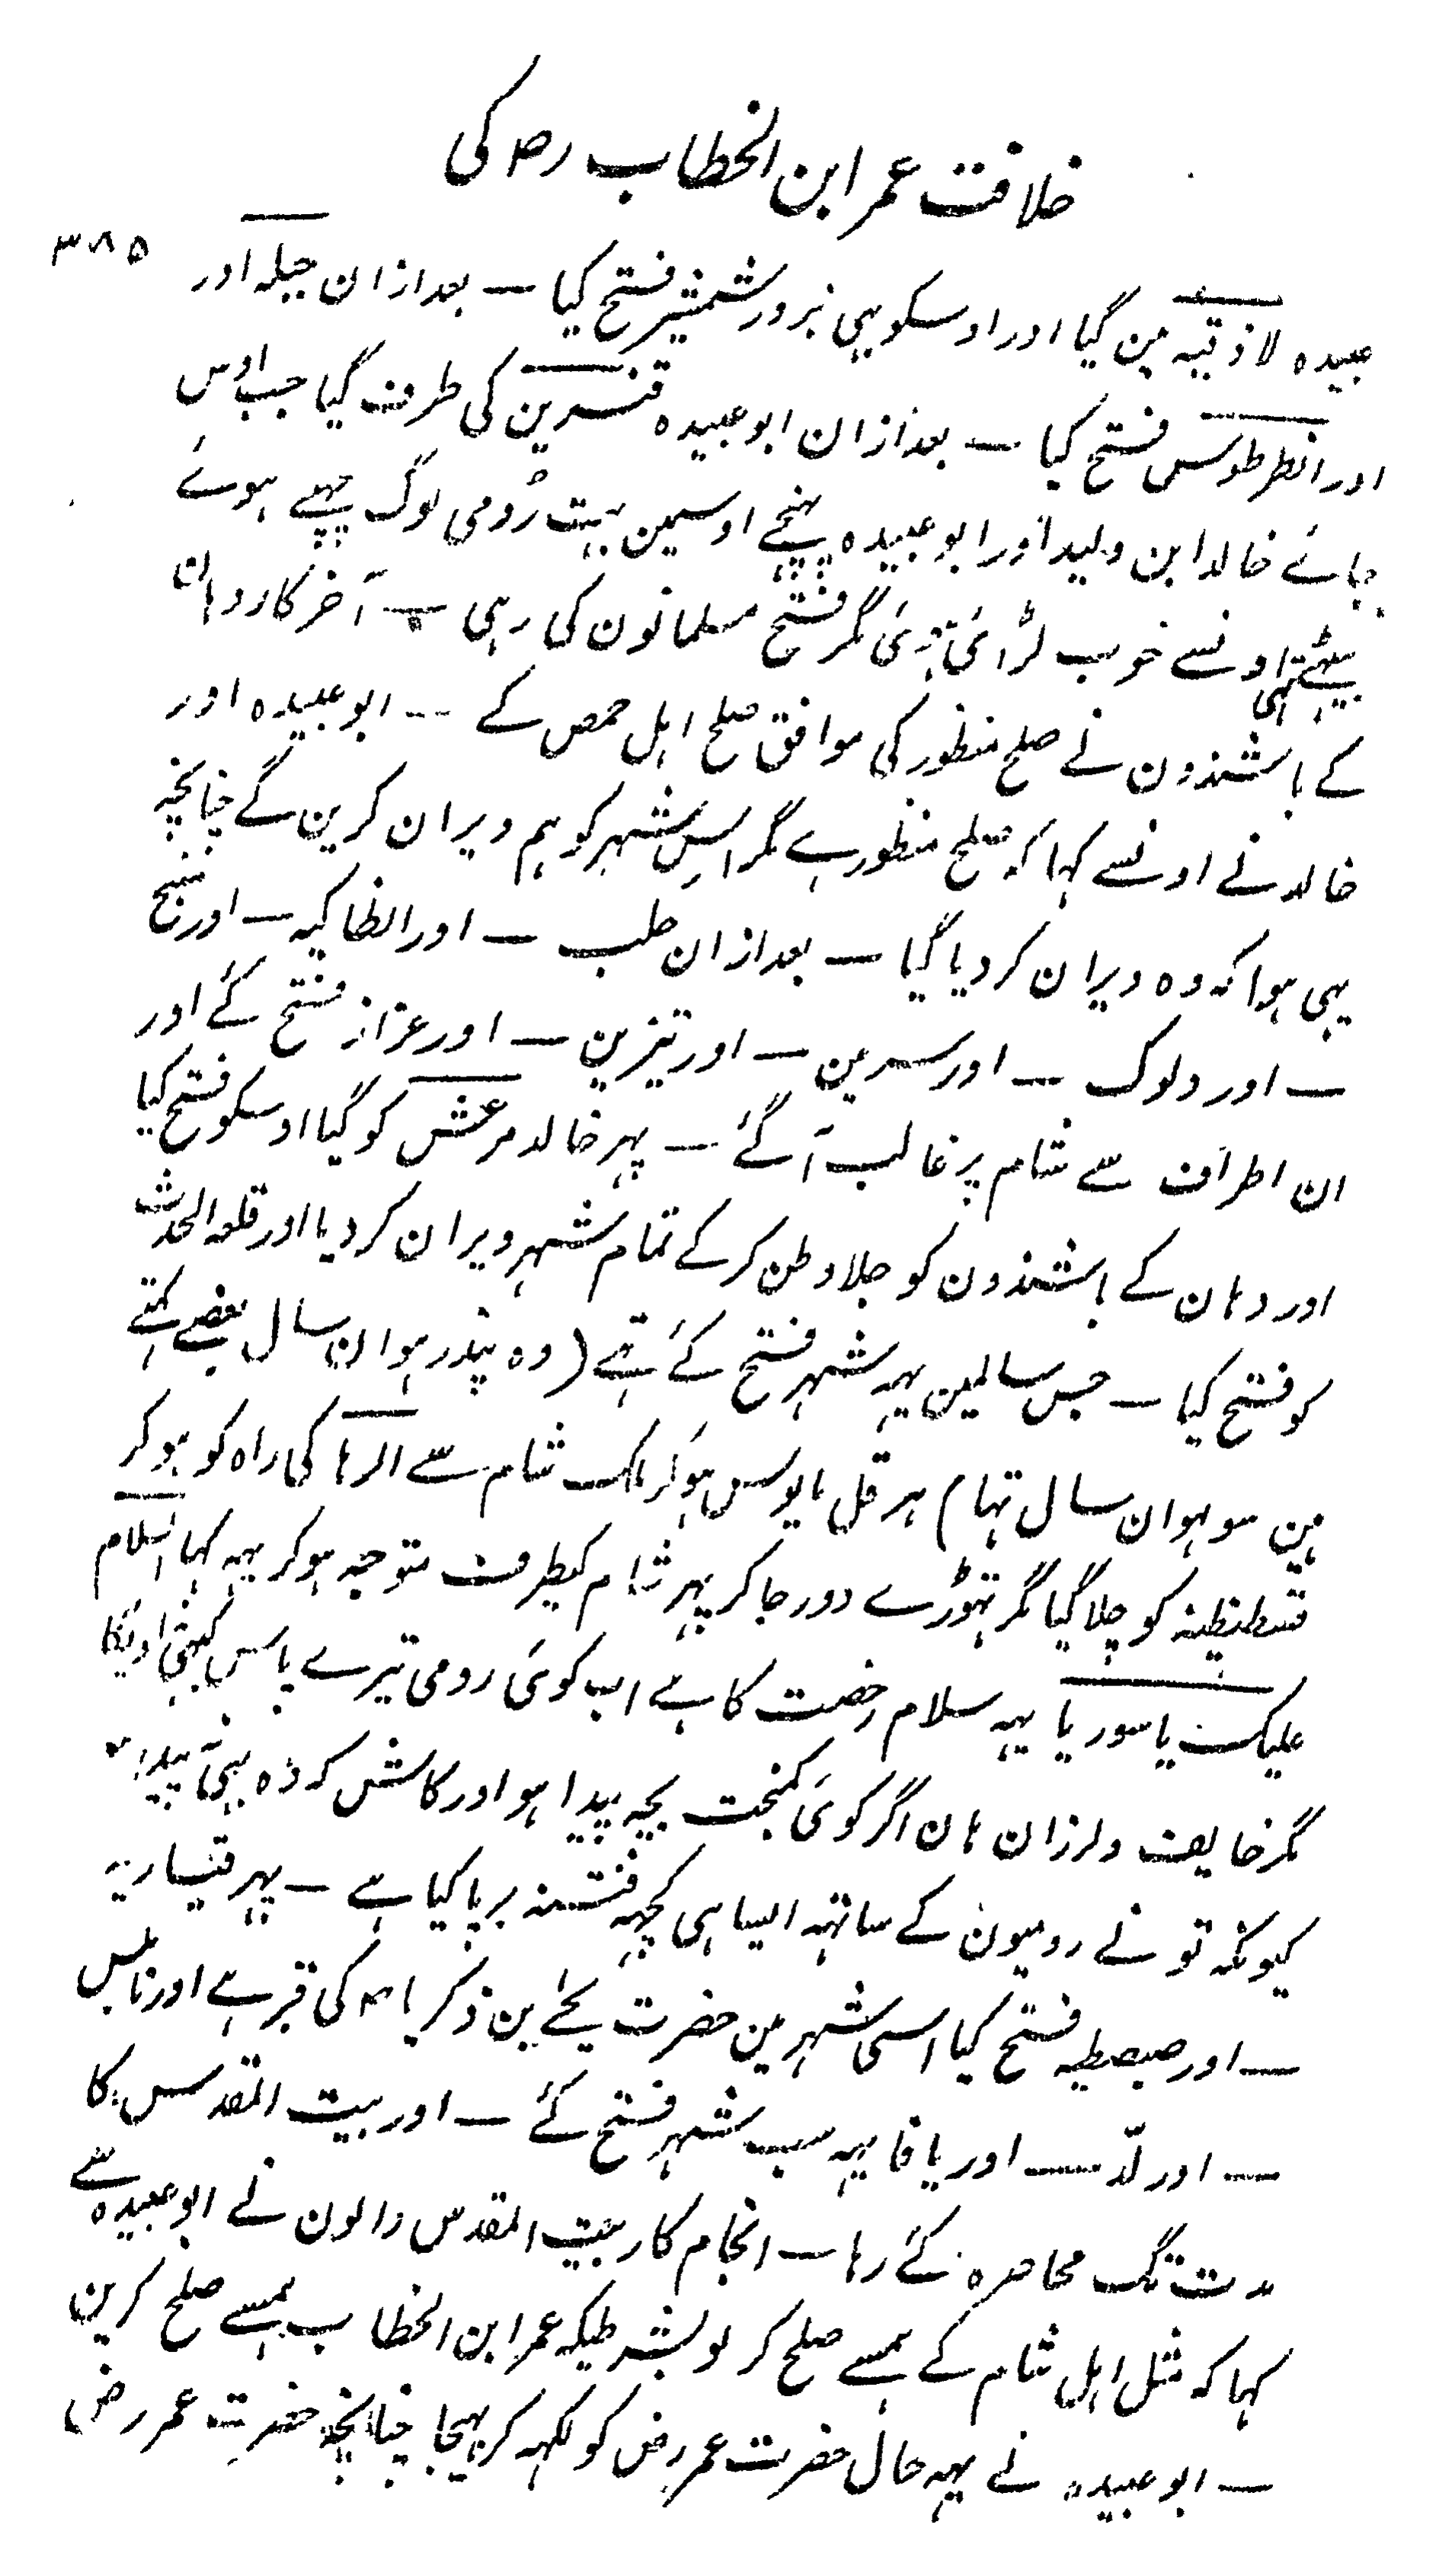 خلافت عمر ابن الخطاب رضـ کی
۳۸۵
عبیدہ لاذقیہ مین گیا اور اوسکو بہی بزور شمشیر فتح کیا — بعد ازان جبلہ اور
اور انطرطوس فتح کیا — بعد ازان ابو عبیدہ قنسرین کی طرف گیا جب اوس
جائے خالد ابن ولید اور ابو عبیدہ پہنچے اوسمین بہت رومی لوگ چہپے ہوئے
بیٹہے تہی اونسے خوب لڑائی ہوئی مگر فتح مسلمانون کی رہی — آخر کار وہان
کے باشندون نے صلح منظور کی موافق صلح اہل حمص کے -- ابو عبیدہ اور
خالد نے اونسے کہا کہ صلح منظور ہے مگر اس شہر کو ہم ویران کرین گے چنانچہ
یہی ہوا کہ وہ ویران کر دیا گیا — بعد ازان حلب — اور انطاکیہ — اور منبج
— اور دلوک — اور سرمین — اور تیزین — اور عزاز فتح کئے اور
ان اطراف سے شام پر غالب آگئے — پہر خالد مرعش کو گیا اوسکو فتح کیا
اور وہان کے باشندون کو جلا وطن کر کے تمام شہر ویران کر دیا اور قلعہ الحدث
کو فتح کیا — جس سالمین یہہ شہر فتح کئے تہے ( وہ پندرہوان سال بعضے کہتے
ہین سولہوان سال تہا ) ہرقل مایوس ہوکر ملک شام سے الرہا کی راہ کو ہو کر
قسطنطینہ کو چلا گیا مگر تہوڑے دور جا کر پہر شام کیطرف متوجہ ہو کر یہہ کہا السلام
علیک یا سوریا یہہ سلام رخصت کا ہے اب کوئی رومی تیرے پاس کبہی اویگا
مگر خایف ولرزان ہان اگر کوئی کمبخت بچہ پیدا ہو اور کاش کہ وہ بچہ پیدا
کیونکہ تو نے رومیون کے ساتہہ ایسا ہی کچہہ فتنہ برپا کیا ہے — پہر قیساریہ
— اور صبصطیہ فتح کیا اسی شہر مین حضرت یحیٰے بن ذکریا ؑ کی قبر ہے اور نابلس
— اور لدّ — اور یافا یہہ سب شہر فتح کئے — اور بیت المقدس کا
مدت تک محاصرہ کئے رہا — انجام کار بیت المقدس والون نے ابو عبیدہ سے
کہا کہ مثل اہل شام کے ہمسے صلح کر لو بشرطیکہ عمر ابن الخطاب ہمسے صلح کرین
— ابو عبیدہ نے یہہ حال حضرت عمر رض کو لکہہ کر بہیجا چنانچہ حضرت عمر رض